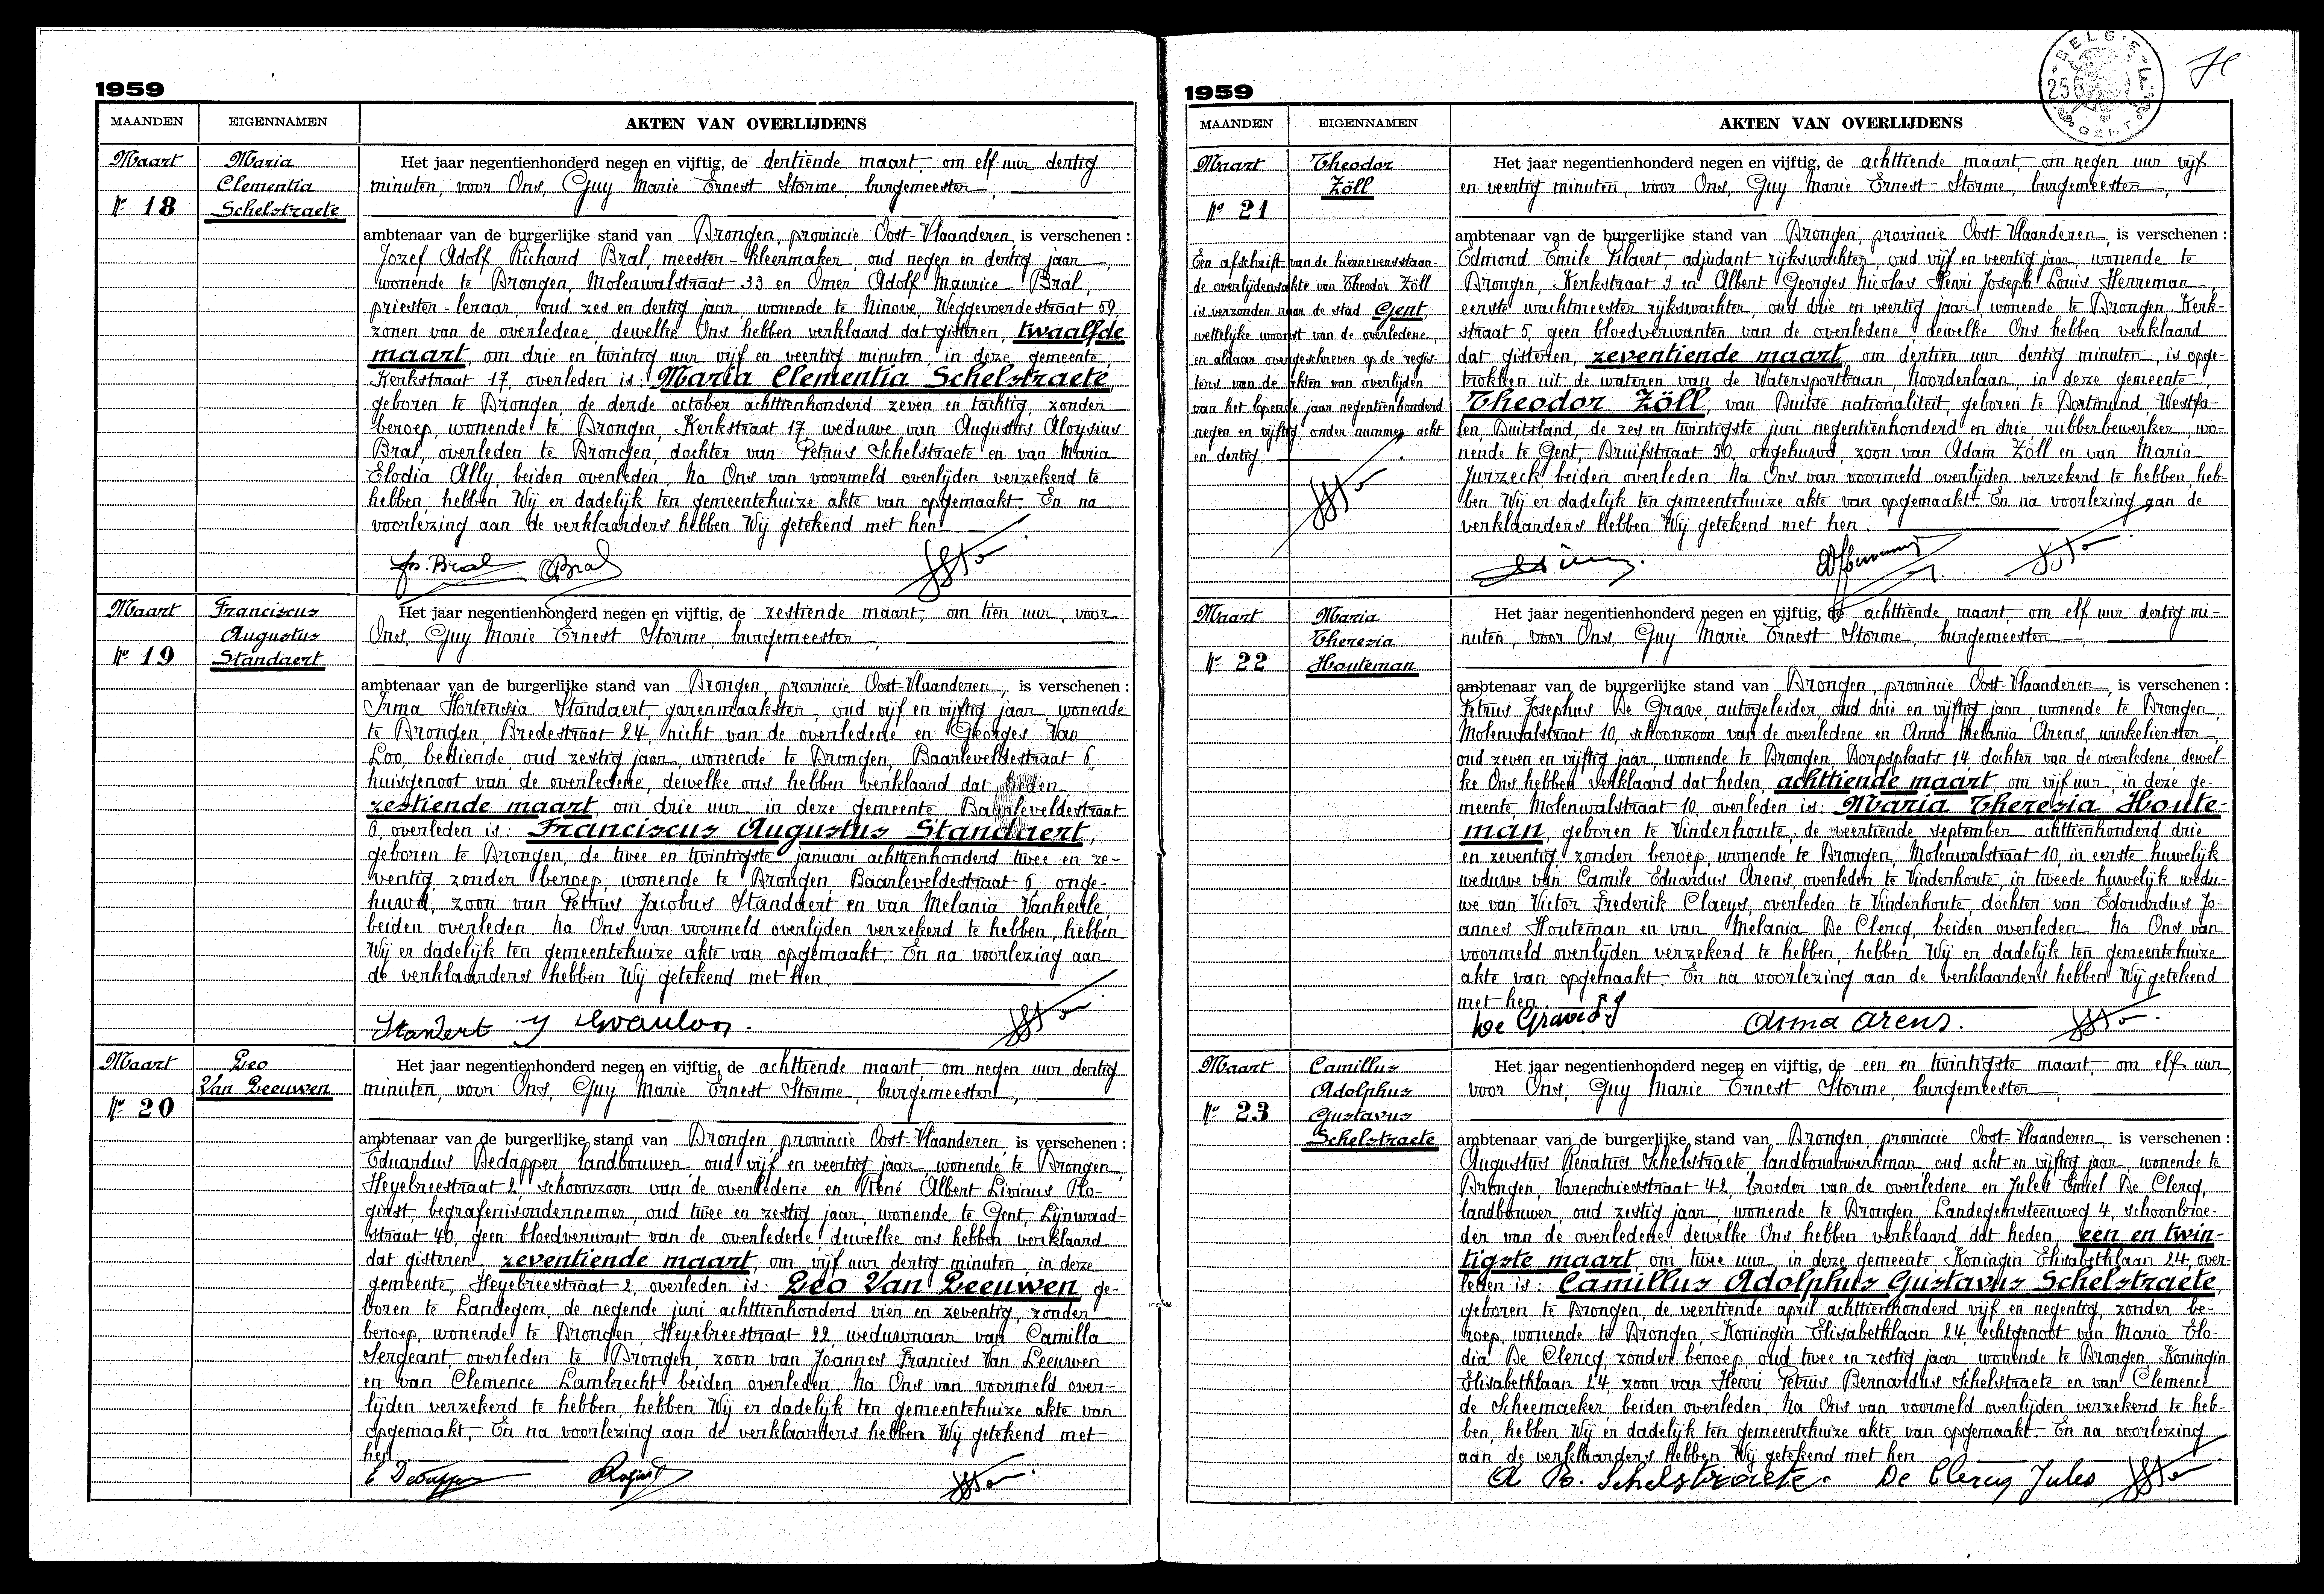 1959
MAANDEN EIGENNAMEN AKTEN VAN OVERLIJDENS
Maart
Nr 18
Maria
Clementia
Schelstraete
Het jaar negentienhonderd negen en vijftig, de dertiende maart, om elf uur dertig
minuten, voor Ons, Guy Marie Ernest Storme, burgemeester,
ambtenaar van de burgerlijke stand van Drongen, provincie Oost-Vlaanderen, is verschenen :
Jozef Adolf Richard Bral, meester-kleermaker, oud negen en dertig jaar,
wonende te Drongen, Molenwalstraat 33 en Omer Adolf Maurice Bral,
priester-leraar, oud zes en dertig jaar, wonende te Ninove, Weggevoerdestraat 59,
zonen van de overledene, dewelke Ons hebben verklaard dat gisteren, twaalfde
maart, om drie en twintig uur vijf en veertig minuten, in deze gemeente
Kerkstraat 17, overleden is: Maria Clementia Schelstraete,
geboren te Drongen, de derde october achttienhonderd zeven en tachtig, zonder
beroep, wonende te Drongen, Kerkstraat 17, weduwe van Augustus Aloysius
Bral, overleden te Drongen, dochter van Petrus Schelstraete en van Maria
Elodia Ally, beiden overleden. Na Ons van voormeld overlijden verzekerd te
hebben, hebben Wij er dadelijk ten gemeentehuize akte van opgemaakt. En na
voorlezing aan de verklaarders hebben Wij getekend met hen.
Js. Bral OBral
Maart
Nr 19
Franciscus
Augustus
Standaert
Het jaar negentienhonderd negen en vijftig, de zestiende maart, om tien uur, voor
Ons, Guy Marie Ernest Storme, burgemeester,
ambtenaar van de burgerlijke stand van Drongen, provincie Oost-Vlaanderen, is verschenen :
Irma Hortensia Standaert, garenmaakster, oud vijf en vijftig jaar, wonende
te Drongen, Bredestraat 24, nicht van de overledene en Georges Van
Loo, bediende, oud zestig jaar, wonende te Drongen, Baarleveldestraat 6,
huisgenoot van de overledene, dewelke ons hebben verklaard dat heden,
zestiende maart, om drie uur, in deze gemeente, Baarleveldestraat
6, overleden is: Franciscus Augustus Standaert,
geboren te Drongen, de twee en twintigste januari achttienhonderd twee en ze-
ventig, zonder beroep, wonende te Drongen, Baarleveldestraat 6, onge-
huwd, zoon van Petrus Jacobus Standaert en van Melania Vanheule,
beiden overleden. Na Ons van voormeld overlijden verzekerd te hebben, hebben
Wij er dadelijk ten gemeentehuize akte van opgemaakt. En na voorlezing aan
de verklaarders hebben Wij getekend met Hen.
Standert y Gvanloo.
Maart
Nr 20
Leo
Van Leeuwen
Het jaar negentienhonderd negen en vijftig, de achttiende maart, om negen uur dertig
minuten, voor Ons, Guy Marie Ernest Storme, burgemeester,
ambtenaar van de burgerlijke stand van Drongen, provincie Oost-Vlaanderen, is verschenen :
Eduardus Dedapper, landbouwer, oud vijf en veertig jaar, wonende te Drongen,
Heyebreestraat 2, schoonzoon van de overledene en René Albert Livinus Ro-
girst, begrafenisondernemer, oud twee en zestig jaar, wonende te Gent, Lijnwaad-
straat 40, geen bloedverwant van de overledene, dewelke ons hebben verklaard
dat gisteren, zeventiende maart, om vijf uur dertig minuten, in deze
gemeente, Heyebreestraat 2, overleden is: Leo Van Leeuwen, ge-
boren te Landegem, de negende juni achttienhonderd vier en zeventig, zonder
beroep, wonende te Drongen, Heyebreestraat 22, weduwnaar van Camilla
Sergeant, overleden te Drongen, zoon van Joannes Francies Van Leeuwen
en van Clemence Lambrecht, beiden overleden. Na Ons van voormeld over-
lijden verzekerd te hebben, hebben Wij er dadelijk ten gemeentehuize akte van
opgemaakt. En na voorlezing aan de verklaarders hebben Wij getekend met
hen.
E Dedapper
1959
BELGIE
GENT
MAANDEN EIGENNAMEN AKTEN VAN OVERLIJDENS
Maart
Nr 21
Theodor
Zöll
Een afschrift van de hiernevensstaan-
de overlijdensakte van Theodor Zöll
is verzonden naar de stad Gent,
wettelijke woonst van de overledene,
en aldaar overgeschreven op de regis-
ters van de akten van overlijden
van het lopende jaar negentienhonderd
negen en vijftig, onder nummer acht
en dertig.
Het jaar negentienhonderd negen en vijftig, de achttiende maart, om negen uur vijf
en veertig minuten, voor Ons, Guy Marie Ernest Storme, burgemeester,
ambtenaar van de burgerlijke stand van Drongen, provincie Oost-Vlaanderen, is verschenen :
Edmond Emile Filaert, adjudant rijkswachter, oud vijf en veertig jaar, wonende te
Drongen, Kerkstraat 3 en Albert Georges Nicolas Henri Joseph Louis Herreman,
eerste wachtmeester rijkswachter, oud drie en veertig jaar, wonende te Drongen, Kerk-
straat 5, geen bloedverwanten van de overledene, dewelke Ons hebben verklaard
dat gisteren, zeventiende maart, om dertien uur dertig minuten, is opge-
trokken uit de wateren van de Watersportbaan, Noorderlaan, in deze gemeente
Theodor Zöll, van Duitse nationaliteit, geboren te Dortmund, Westfa-
len, Duitsland, de zes en twintigste juni negentienhonderd en drie, rubberbewerker, wo-
nende te Gent, Druifstraat 50, ongehuwd, zoon van Adam Zöll en van Maria
Jurzeck, beiden overleden. Na Ons van voormeld overlijden verzekerd te hebben, heb-
ben Wij er dadelijk ten gemeentehuize akte van opgemaakt. En na voorlezing aan de
verklaarders hebben Wij getekend met hen.
Maart
Nr 22
Maria
Theresia
Houteman
Het jaar negentienhonderd negen en vijftig, de achttiende maart, om elf uur dertig mi-
nuten, voor Ons, Guy Marie Ernest Storme, burgemeester,
ambtenaar van de burgerlijke stand van Drongen, provincie Oost-Vlaanderen, is verschenen :
Petrus Josephus De Grave, autogeleider, oud drie en vijftig jaar, wonende te Drongen,
Molenwalstraat 10, schoonzoon van de overledene en Anna Melania Arens, winkelierster,
oud zeven en vijftig jaar, wonende te Drongen, Dorpsplaats 14, dochter van de overledene, dewel-
ke Ons hebben verklaard dat heden, achttiende maart, om vijf uur, in deze ge-
meente, Molenwalstraat 10, overleden is: Maria Theresia Houte-
man, geboren te Vinderhoute, de veertiende september achttienhonderd drie
en zeventig, zonder beroep, wonende te Drongen, Molenwalstraat 10, in eerste huwelijk
weduwe van Camile Eduardus Arens, overleden te Vinderhoute, in tweede huwelijk wedu-
we van Victor Frederik Claeys, overleden te Vinderhoute, dochter van Edouardus Jo-
annes Houteman en van Melania De Clercq, beiden overleden. Na Ons van
voormeld overlijden verzekerd te hebben, hebben Wij er dadelijk ten gemeentehuize
akte van opgemaakt. En na voorlezing aan de verklaarders hebben Wij getekend
met hen.
De Grave P.J Anna Arens.
Maart
Nr 23
Camillus
Adolphus
Gustavus
Schelstraete
Het jaar negentienhonderd negen en vijftig, de een en twintigste maart, om elf uur,
voor Ons, Guy Marie Ernest Storme, burgemeester,
ambtenaar van de burgerlijke stand van Drongen, provincie Oost-Vlaanderen, is verschenen :
Augustus Renatus Schelstraete, landbouwwerkman, oud acht en vijftig jaar, wonende te
Drongen, Varendriesstraat 42, broeder van de overledene en Jules Emiel De Clercq,
landbouwer, oud zestig jaar, wonende te Drongen, Landegemsteenweg 4, schoonbroe-
der van de overledene, dewelke Ons hebben verklaard dat heden, een en twin-
tigste maart, om twee uur, in deze gemeente, Koningin Elisabethlaan 24, over-
leden is: Camillus Adolphus Gustavus Schelstraete,
geboren te Drongen, de veertiende april achttienhonderd vijf en negentig, zonder be-
roep, wonende te Drongen, Koningin Elisabethlaan 24, echtgenoot van Maria Elo-
dia De Clercq, zonder beroep, oud twee en zestig jaar, wonende te Drongen, Koningin
Elisabethlaan 24, zoon van Henri Petrus Bernardus Schelstraete en van Clemence
de Scheemaeker, beiden overleden. Na Ons van voormeld overlijden verzekerd te heb-
ben, hebben Wij er dadelijk ten gemeentehuize akte van opgemaakt. En na voorlezing
aan de verklaarders hebben Wij getekend met hen.
A R. Schelstraete. De Clercq Jules